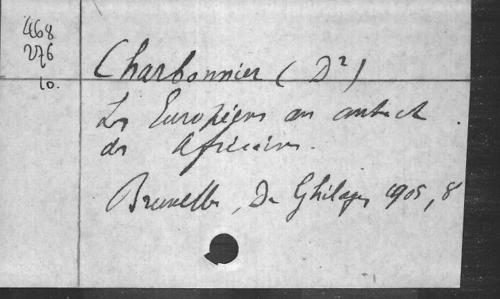 468
276
10.
Charbonnier (Dr)
Les Européens au contact
des Africains.
Bruxelles, De Ghilage 1905, 8°